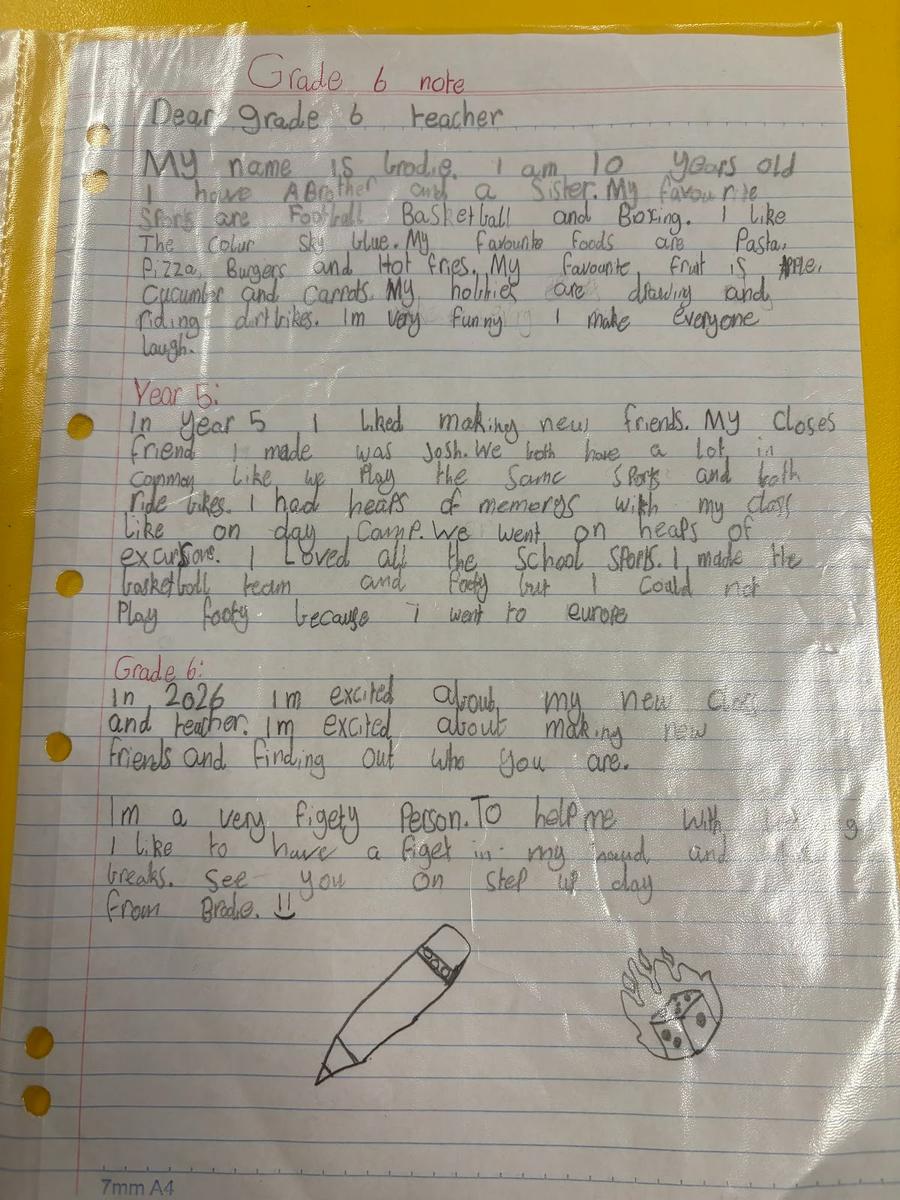 Grade 6 note
Dear grade 6 teacher
My name is Brodie. I am 10 years old
I have A Brother and a Sister. My favourite
Sports are Football Basketball and Boxing. I like
The colur sky blue. My favourite foods are Pasta.
Pizza, Burgers and Hot fries. My favourite fruit is Apple.
Cucumber and Carrots. My hobities are drawing and
riding dirtbikes. Im very funny I make everyone
laugh.
Year 5:
In Year 5 I liked making new friends. My closes
friend I made was Josh. We both have a lot in
common like we Play the same sports and both
ride bikes. I had heaps of memorys with my class
like on day camp. We went on heaps of
excursions. I Loved all the School Sports. I made the
basketball team and footy but I could not
Play footy because I went to europe
Grade 6:
In 2026 Im excited about my new class
and teacher. Im excited about making new
friends and finding out who you are.
Im a very figety Person. To help me with
I like to have a figet in my hand and
breaks. See you on step up day
from Brodie. !!
7mm A4